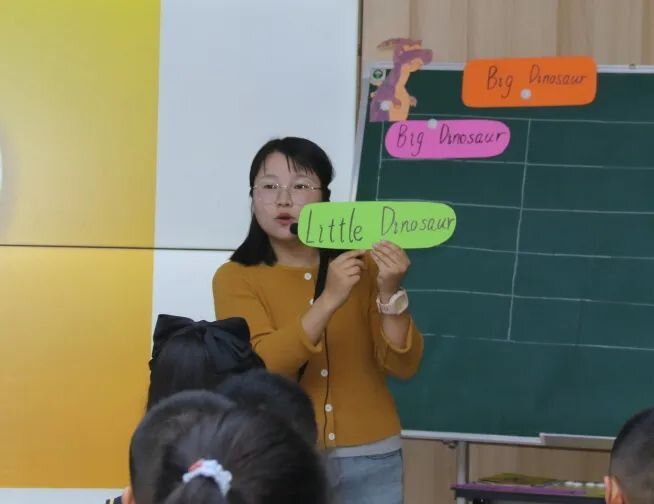 Big Dinosaur
Big Dinosaur
Little Dinosaur